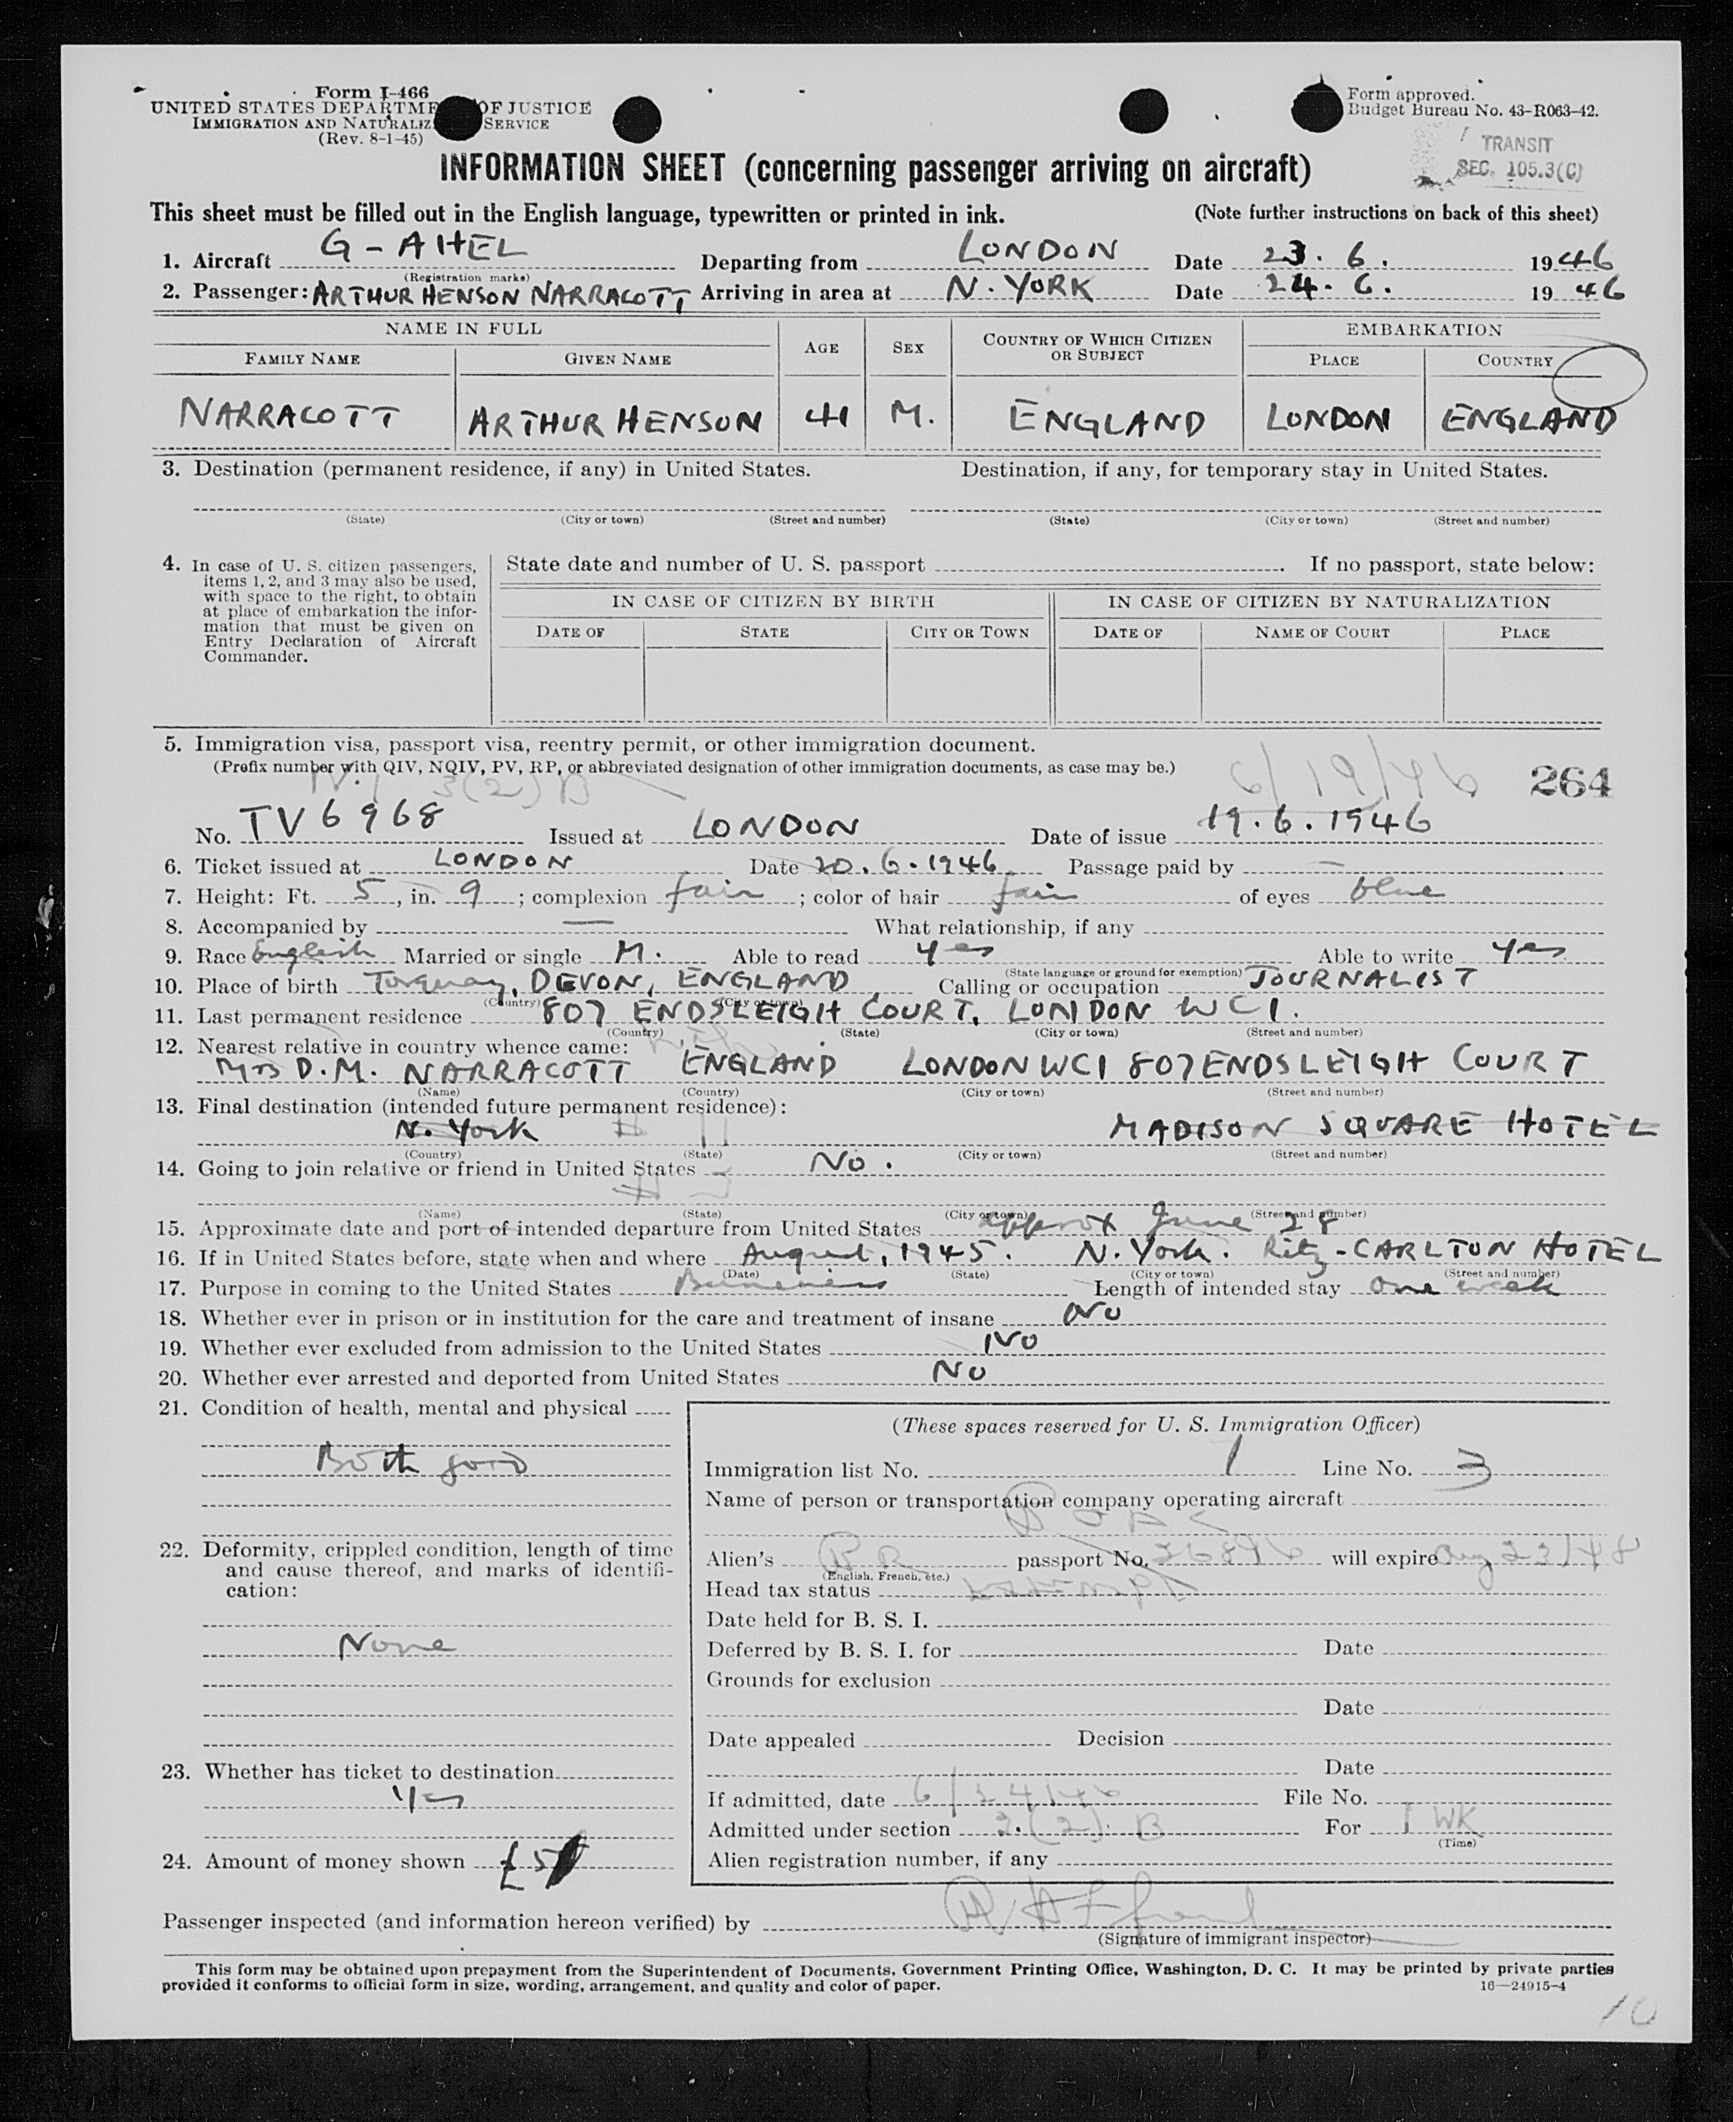 Form I-466
UNITED STATES DEPARTME OF JUSTICE
IMMIGRATION AND NATURALIZ SERVICE
(Rev. 8-1-45)
Form approved.
Budget Bureau No. 43-R063-42.
TRANSIT
SEC. 105.3(C)
INFORMATION SHEET (concerning passenger arriving on aircraft)
This sheet must be filled out in the English language, typewritten or printed in ink. (Note further instructions on back of this sheet)
1. Aircraft G-AHEL Departing from LONDON Date 23. 6. 1946
(Registration marks)
2. Passenger: ARTHUR HENSON NARRACOTT Arriving in area at N. YORK Date 24. 6. 1946
NAME IN FULL AGE SEX COUNTRY OF WHICH CITIZEN OR SUBJECT EMBARKATION
FAMILY NAME GIVEN NAME PLACE COUNTRY
NARRACOTT ARTHUR HENSON 41 M. ENGLAND LONDON ENGLAND
3. Destination (permanent residence, if any) in United States. Destination, if any, for temporary stay in United States.
(State) (City or town) (Street and number) (State) (City or town) (Street and number)
4. In case of U. S. citizen passengers,
items 1, 2, and 3 may also be used,
with space to the right, to obtain
at place of embarkation the infor-
mation that must be given on
Entry Declaration of Aircraft
Commander.
State date and number of U. S. passport . If no passport, state below:
IN CASE OF CITIZEN BY BIRTH IN CASE OF CITIZEN BY NATURALIZATION
DATE OF STATE CITY OR TOWN DATE OF NAME OF COURT PLACE
5. Immigration visa, passport visa, reentry permit, or other immigration document.
(Prefix number with QIV, NQIV, PV, RP, or abbreviated designation of other immigration documents, as case may be.)
3(2) B 6/19/46 264
No. TV 6968 Issued at LONDON Date of issue 19. 6. 1946
6. Ticket issued at LONDON Date 20. 6. 1946 Passage paid by —
7. Height: Ft. 5, in. 9; complexion fair; color of hair fair of eyes blue
8. Accompanied by — What relationship, if any
9. Race English Married or single M. Able to read yes Able to write yes
(State language or ground for exemption)
10. Place of birth Torquay, DEVON, ENGLAND Calling or occupation JOURNALIST
(Country) (City or town)
11. Last permanent residence 807 ENDSLEIGH COURT, LONDON WC1.
(Country) (State) (City or town) (Street and number)
12. Nearest relative in country whence came:
Mrs D.M. NARRACOTT ENGLAND LONDON WC1 807 ENDSLEIGH COURT
(Name) (Country) (City or town) (Street and number)
13. Final destination (intended future permanent residence):
N. York MADISON SQUARE HOTEL
(Country) (State) (City or town) (Street and number)
14. Going to join relative or friend in United States No.
(Name) (State) (City or town) (Street and number)
15. Approximate date and port of intended departure from United States approx June 28
16. If in United States before, state when and where August, 1945. N. York. Ritz-CARLTON HOTEL
(Date) (State) (City or town) (Street and number)
17. Purpose in coming to the United States Business Length of intended stay one week
18. Whether ever in prison or in institution for the care and treatment of insane No
19. Whether ever excluded from admission to the United States No
20. Whether ever arrested and deported from United States No
21. Condition of health, mental and physical
Both good
22. Deformity, crippled condition, length of time
and cause thereof, and marks of identifi-
cation:
None
23. Whether has ticket to destination
Yes
24. Amount of money shown £5
(These spaces reserved for U. S. Immigration Officer)
Immigration list No. 1 Line No. 3
Name of person or transportation company operating aircraft
BOAC
Alien's BR passport No. 26896 will expire Aug 23/48
(English, French, etc.)
Head tax status
Date held for B. S. I.
Deferred by B. S. I. for Date
Grounds for exclusion
Date
Date appealed Decision
Date
If admitted, date 6/24/46 File No.
Admitted under section 3.(2). B For 1 WK
(Time)
Alien registration number, if any
Passenger inspected (and information hereon verified) by
(Signature of immigrant inspector)
This form may be obtained upon prepayment from the Superintendent of Documents, Government Printing Office, Washington, D. C. It may be printed by private parties
provided it conforms to official form in size, wording, arrangement, and quality and color of paper. 16—24915-4
10